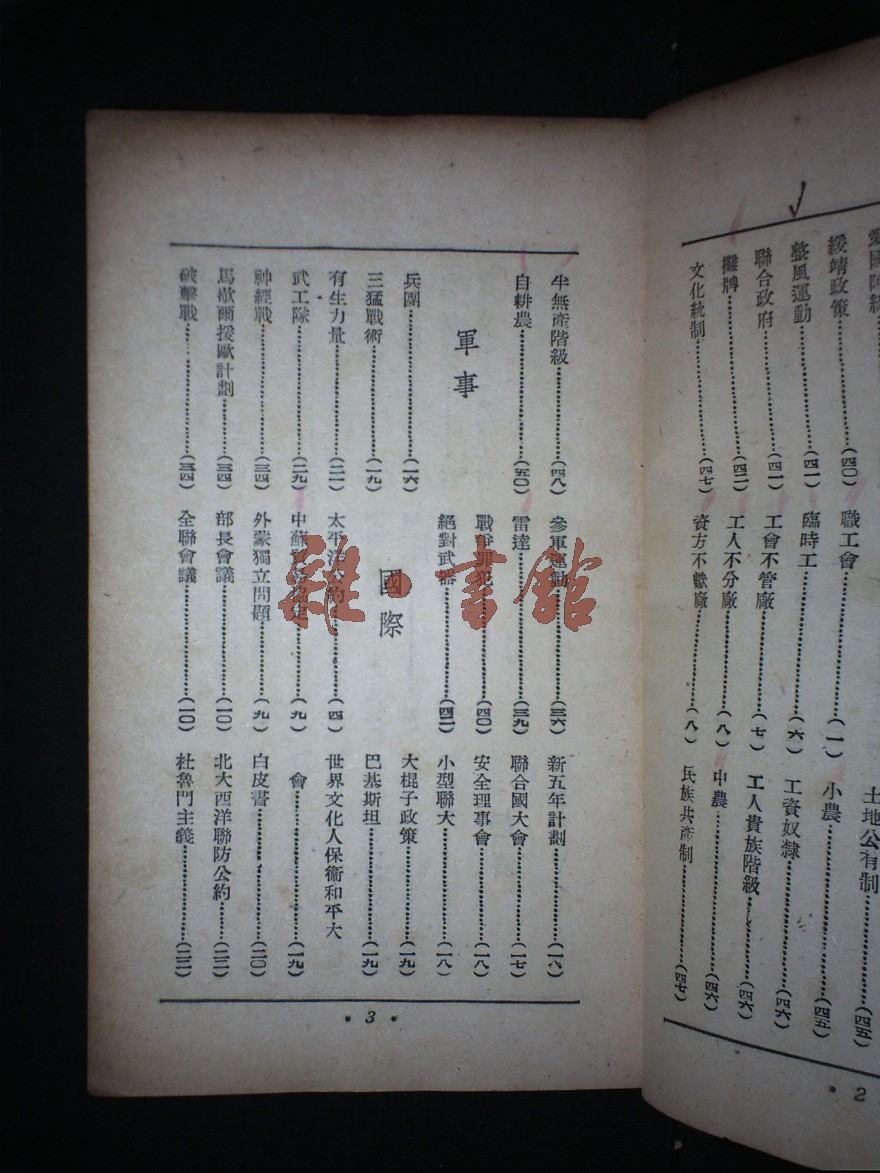 綏靖政策⋯⋯(四〇)
整風運動⋯⋯(四一)
聯合政府⋯⋯(四一)
攤牌⋯⋯(四二)
文化統制⋯⋯(四七)
職工會⋯⋯(一)
臨時工⋯⋯(六)
工會不管廠⋯⋯(七)
工人不分廠⋯⋯(八)
資方不獻廠⋯⋯(八)
土地公有制⋯⋯(四五)
小農⋯⋯(四五)
工資奴隸⋯⋯(四六)
工人貴族階級⋯⋯(四六)
中農⋯⋯(四六)
民族共產制⋯⋯(四七)
• 2
半無產階級⋯⋯(四八)
自耕農⋯⋯(五〇)
軍事
兵團⋯⋯(一六)
三猛戰術⋯⋯(一九)
有生力量⋯⋯(二一)
武工隊⋯⋯(二九)
神經戰⋯⋯(三四)
馬歇爾援歐計劃⋯⋯(三四)
破擊戰⋯⋯(三四)
參軍運動⋯⋯(三六)
雷達⋯⋯(三九)
戰爭罪犯⋯⋯(四〇)
絕對武器⋯⋯(四二)
國際
太平洋公約⋯⋯(四)
中蘇⋯⋯(九)
外蒙獨立問題⋯⋯(九)
部長會議⋯⋯(一〇)
全聯會議⋯⋯(一〇)
新五年計劃⋯⋯(一六)
聯合國大會⋯⋯(一七)
安全理事會⋯⋯(一八)
小型聯大⋯⋯(一八)
大棍子政策⋯⋯(一九)
巴基斯坦⋯⋯(一九)
世界文化人保衛和平大
會⋯⋯(一九)
白皮書⋯⋯(二〇)
北大西洋聯防公約⋯⋯(二二)
杜魯門主義⋯⋯(二二)
• 3 •
雜·書館